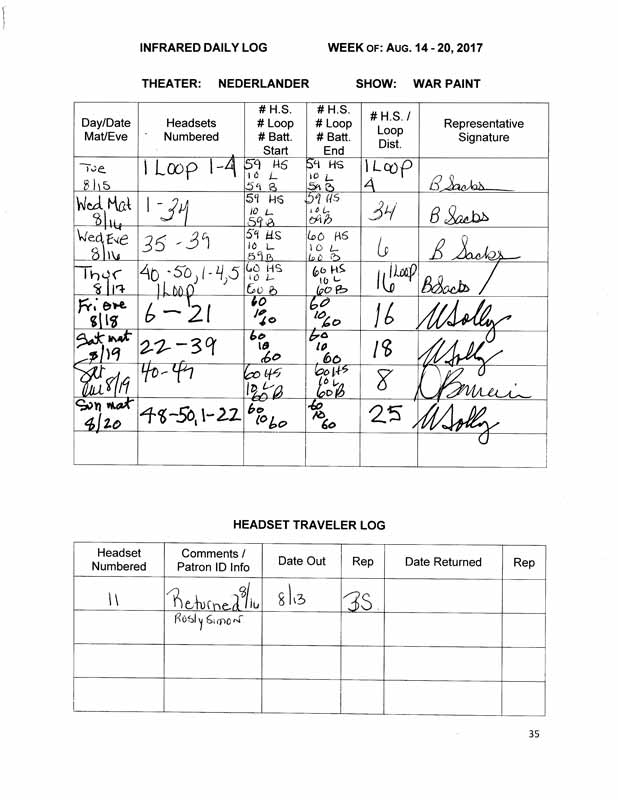 INFRARED DAILY LOG WEEK OF: AUG. 14 - 20, 2017
THEATER: NEDERLANDER SHOW: WAR PAINT
Day/Date Mat/Eve Headsets Numbered # H.S. # Loop # Batt. Start # H.S. # Loop # Batt. End # H.S. / Loop Dist. Representative Signature
Tue 8/15 1 Loop 1-4 59 HS 10 L 59 B 59 HS 10 L 59 B 1 Loop 4 B Sacks
Wed Mat 8/16 1 - 34 59 HS 10 L 59 B 59 HS 10 L 60 B 34 B Sacks
Wed Eve 8/16 35 - 39 59 HS 10 L 59 B 60 HS 10 L 60 B 6 B Sacks
Thur 8/17 40 - 50, 1-4, 5 1 Loop 60 HS 10 L 60 B 60 HS 10 L 60 B 16 1 Loop B Sacks
Fri eve 8/18 6 - 21 60 10 60 60 10 60 16 W Solly
Sat mat 8/19 22 - 39 60 10 60 60 10 60 18 W Solly
Sat eve 8/19 40 - 47 60 HS 10 L 60 B 60 HS 10 L 60 B 8
Sun mat 8/20 48-50, 1-22 60 10 60 60 10 60 25 W Solly
HEADSET TRAVELER LOG
Headset Numbered Comments / Patron ID Info Date Out Rep Date Returned Rep
11 Returned 8/16 8/13 BS
Rosly Simon
35